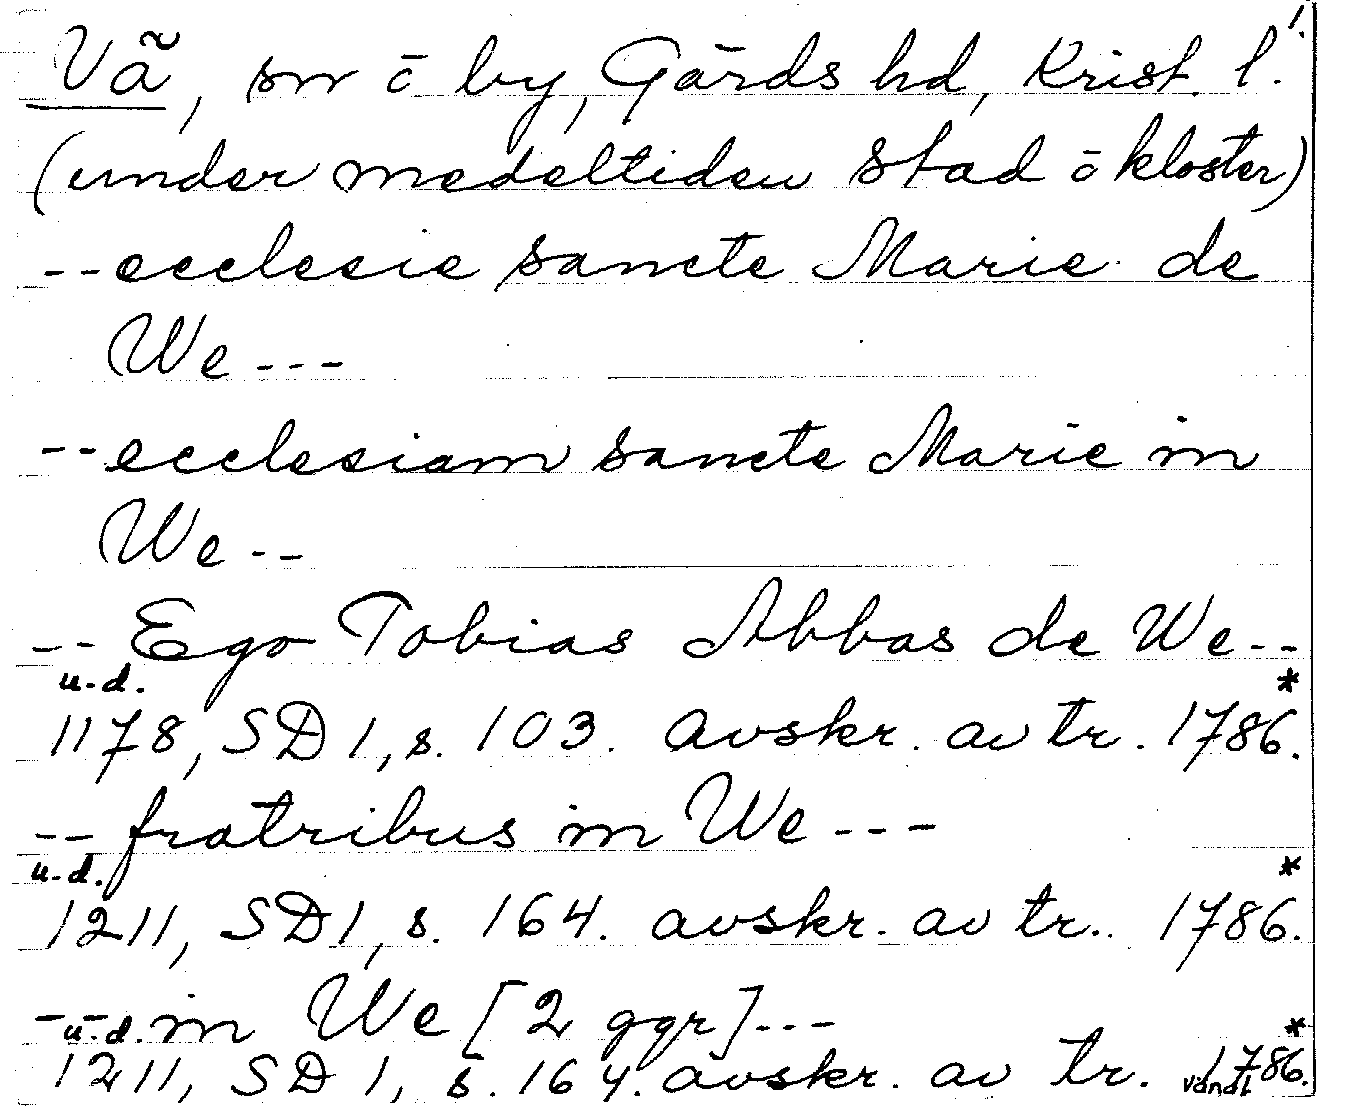 1.
Vã, sn ō by, Gārds hd, Krist. l.
(under medeltiden stad ō kloster)
--ecclesie sancte Marie de
We---
--ecclesiam sancte Marie in
We--
-- Ego Tobias Abbas de We--
u.d. *
1178, SD 1, s. 103. avskr. av tr. 1786.
-- fratribus in We---
u.d. *
1211, SD 1, s. 164. avskr. av tr.. 1786.
-- in We [2 ggr]---
u.d. *
1211, SD 1, s. 164. avskr. av tr. 1786.
vänd!